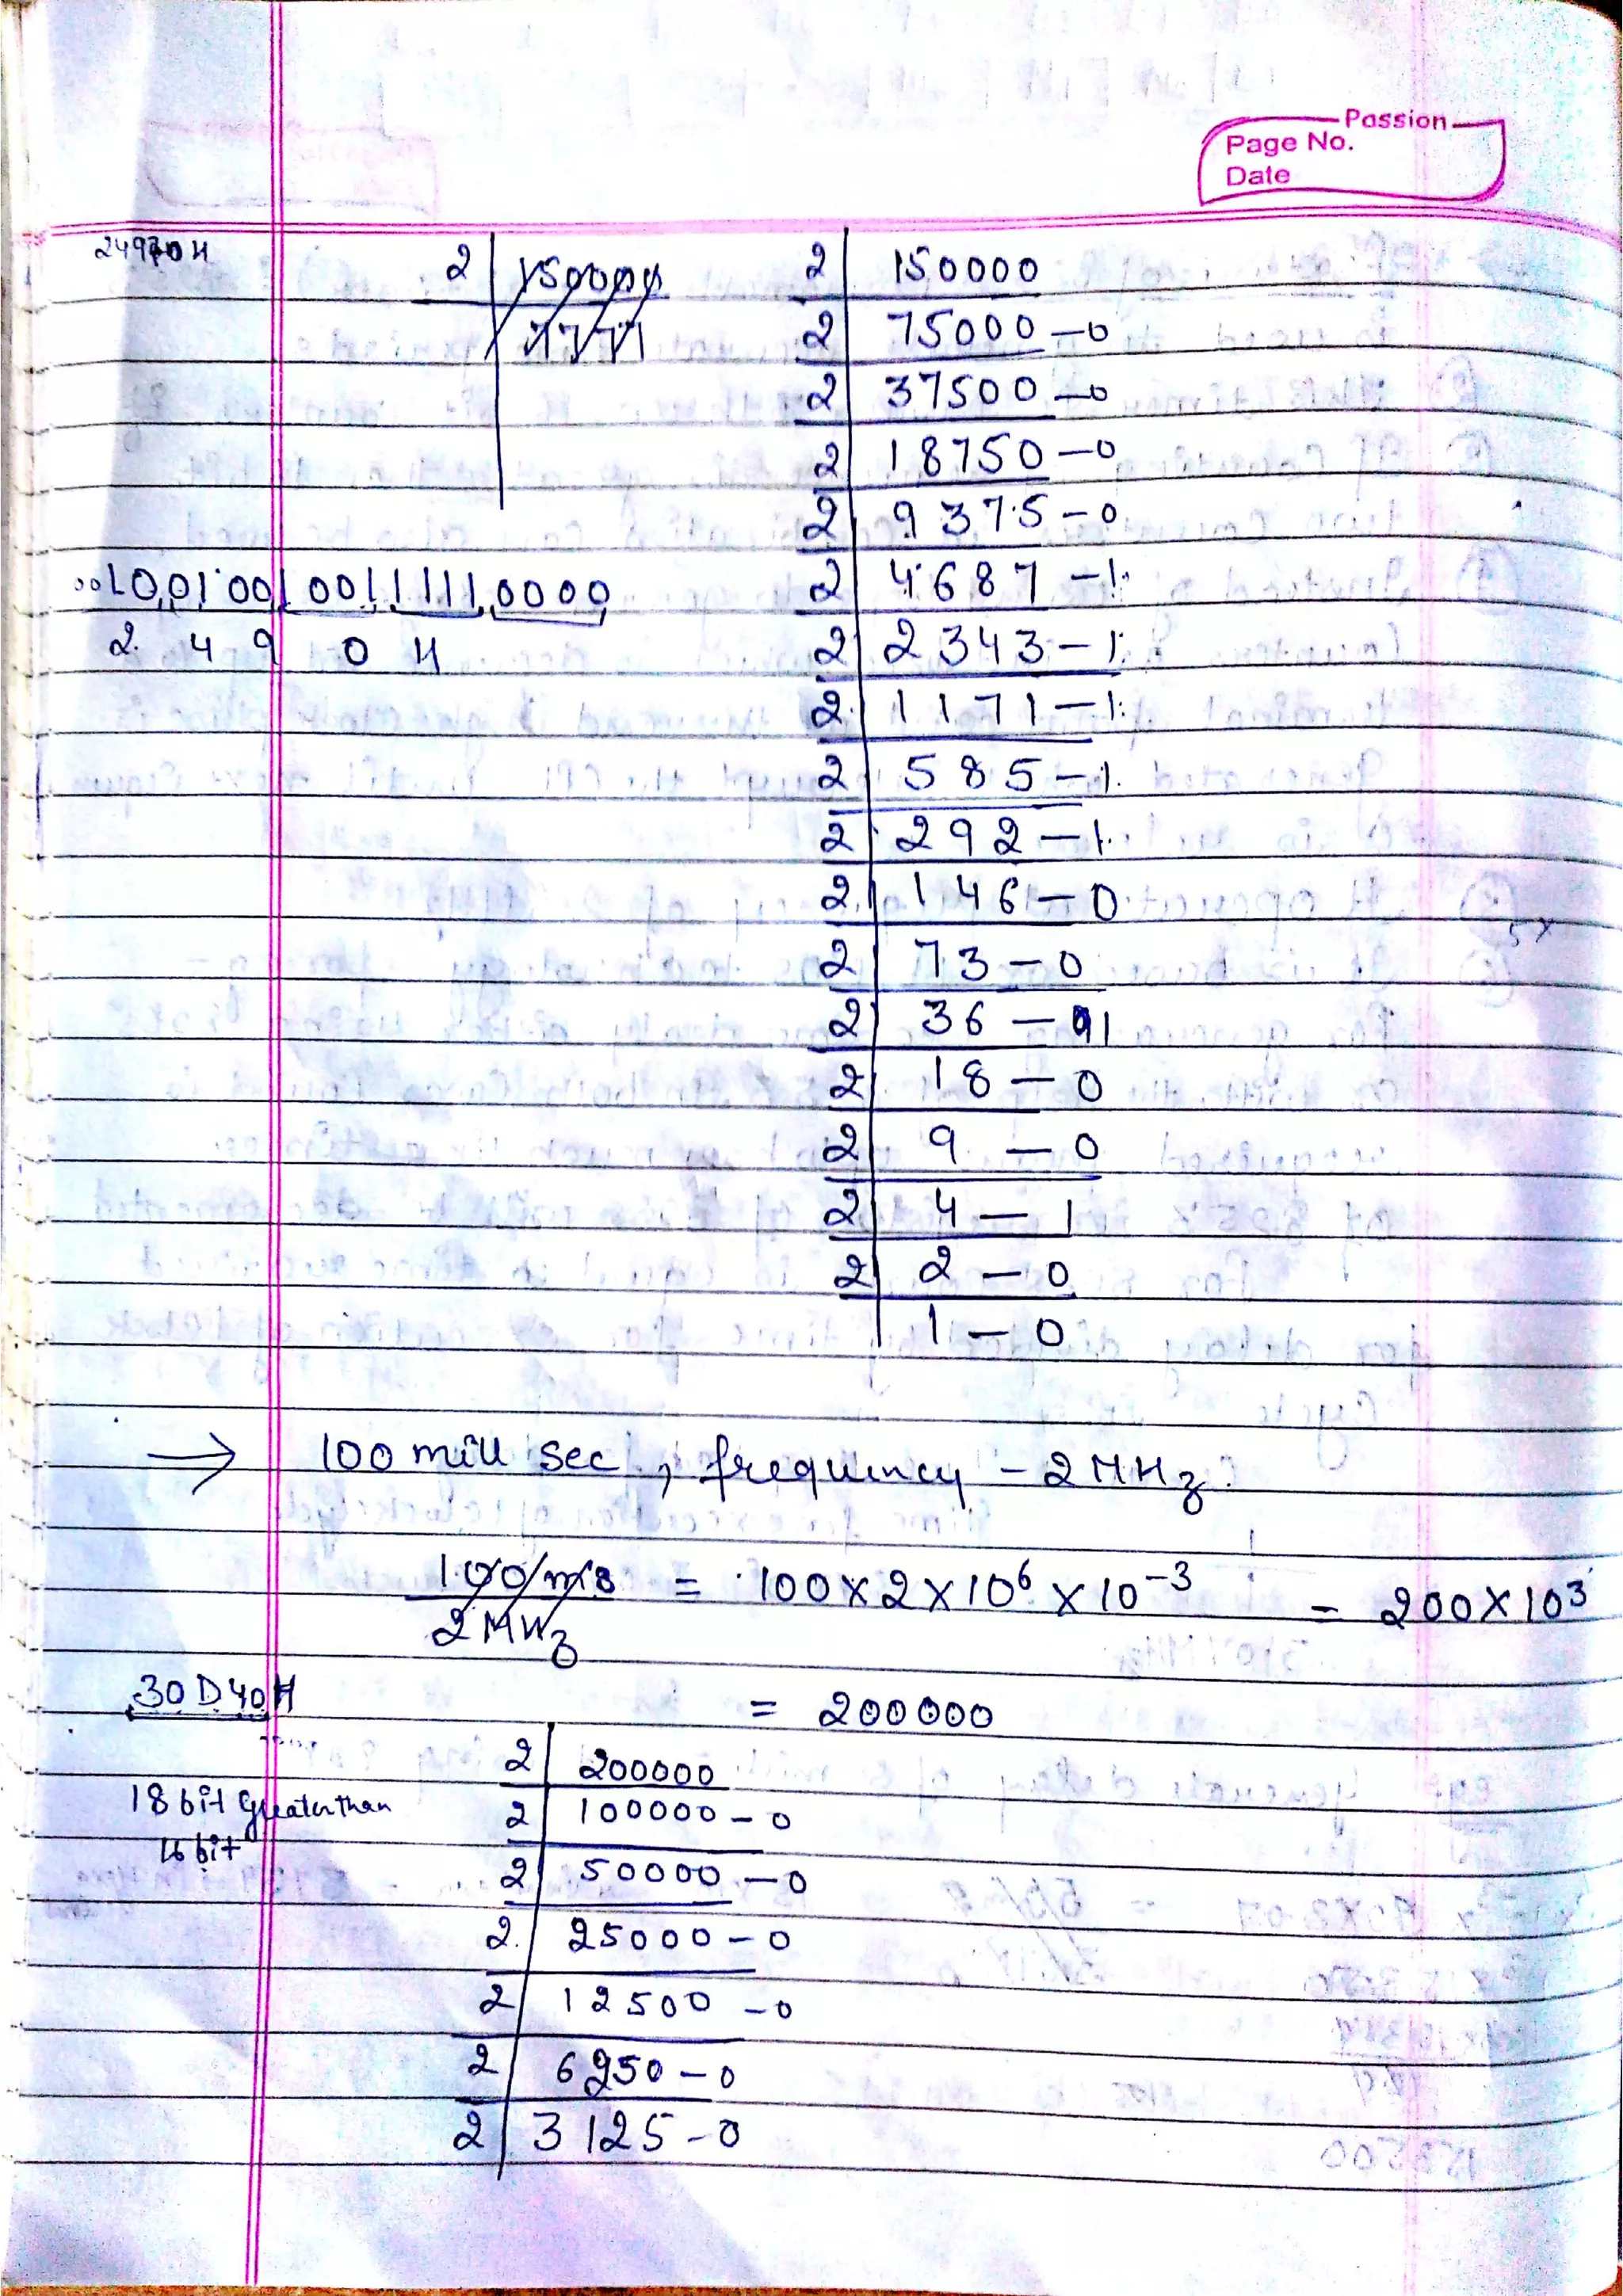 Passion
Page No.
Date
2 | 150000
2 | 150000
2 | 75000 - 0
2 | 37500 - 0
2 | 18750 - 0
2 | 9375 - 0
001001001001111110000
2 4 9 0 H
2 | 4687 - 1
2 | 2343 - 1
2 | 1171 - 1
2 | 585 - 1
2 | 292 - 1
2 | 146 - 0
2 | 73 - 0
2 | 36 - 1
2 | 18 - 0
2 | 9 - 0
2 | 4 - 1
2 | 2 - 0
1 - 0
→ 100 mill sec, frequency - 2 MHz.
100 ms / 2 MHz = 100 × 2 × 10⁶ × 10⁻³ = 200 × 10³
30D40H
= 200000
2 | 200000
18 bit greater than
16 bit
2 | 100000 - 0
2 | 50000 - 0
2 | 25000 - 0
2 | 12500 - 0
2 | 6250 - 0
2 | 3125 - 0